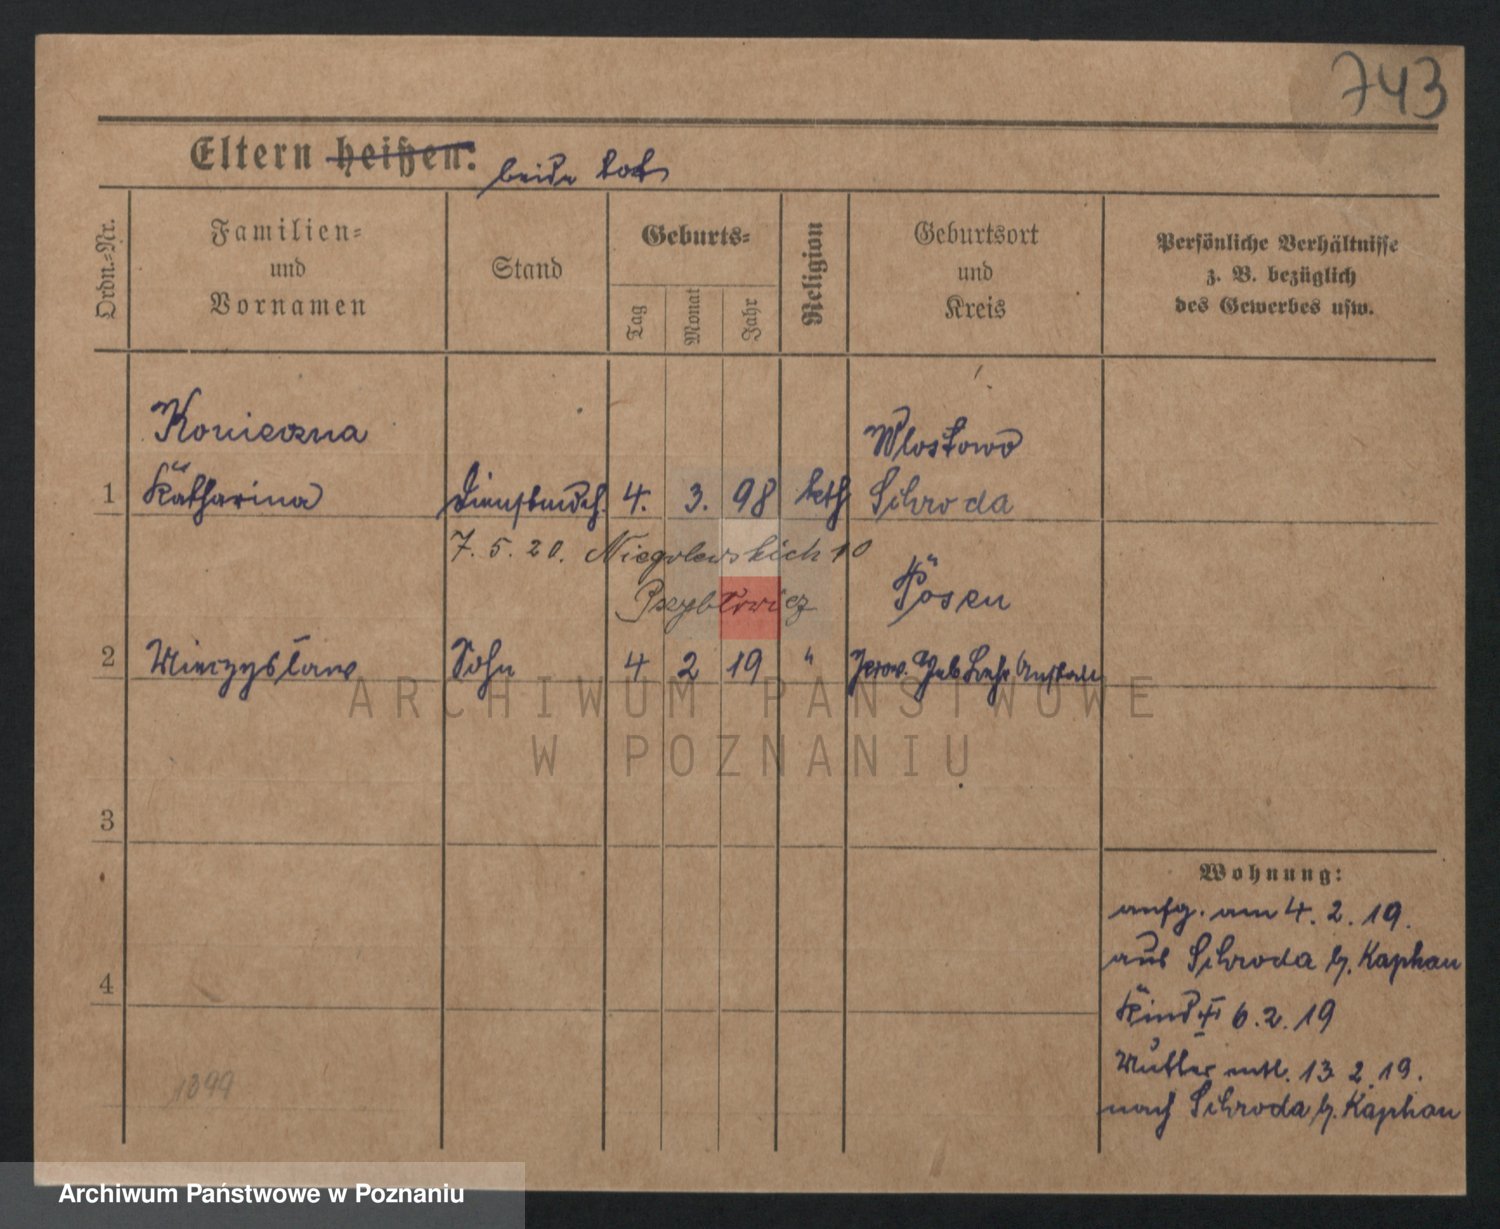 743
Eltern heißen: beide tot
Ordn.=Nr.
Familien=
und
Vornamen
Stand
Geburts=
Tag
Monat
Jahr
Religion
Geburtsort
und
Kreis
Persönliche Verhältnisse
z. B. bezüglich
des Gewerbes usw.
Konieczna
Wlostowo
1 Katharina Dienstmdch. 4. 3. 98 kath Schroda
7. 5. 20. Niegolewskich 10
Posen
2 Mieczyslaw Sohn 4 2 19 " Prov. Heb Lehr Anstalt
ARCHIWUM PAŃSTWOWE
W POZNANIU
3
Wohnung:
aufg. am 4. 2. 19.
aus Schroda b. Kaphan
4
Kind 6. 2. 19
Mutter entl. 13 2. 19.
nach Schroda b. Kaphan
1399
Archiwum Państwowe w Poznaniu